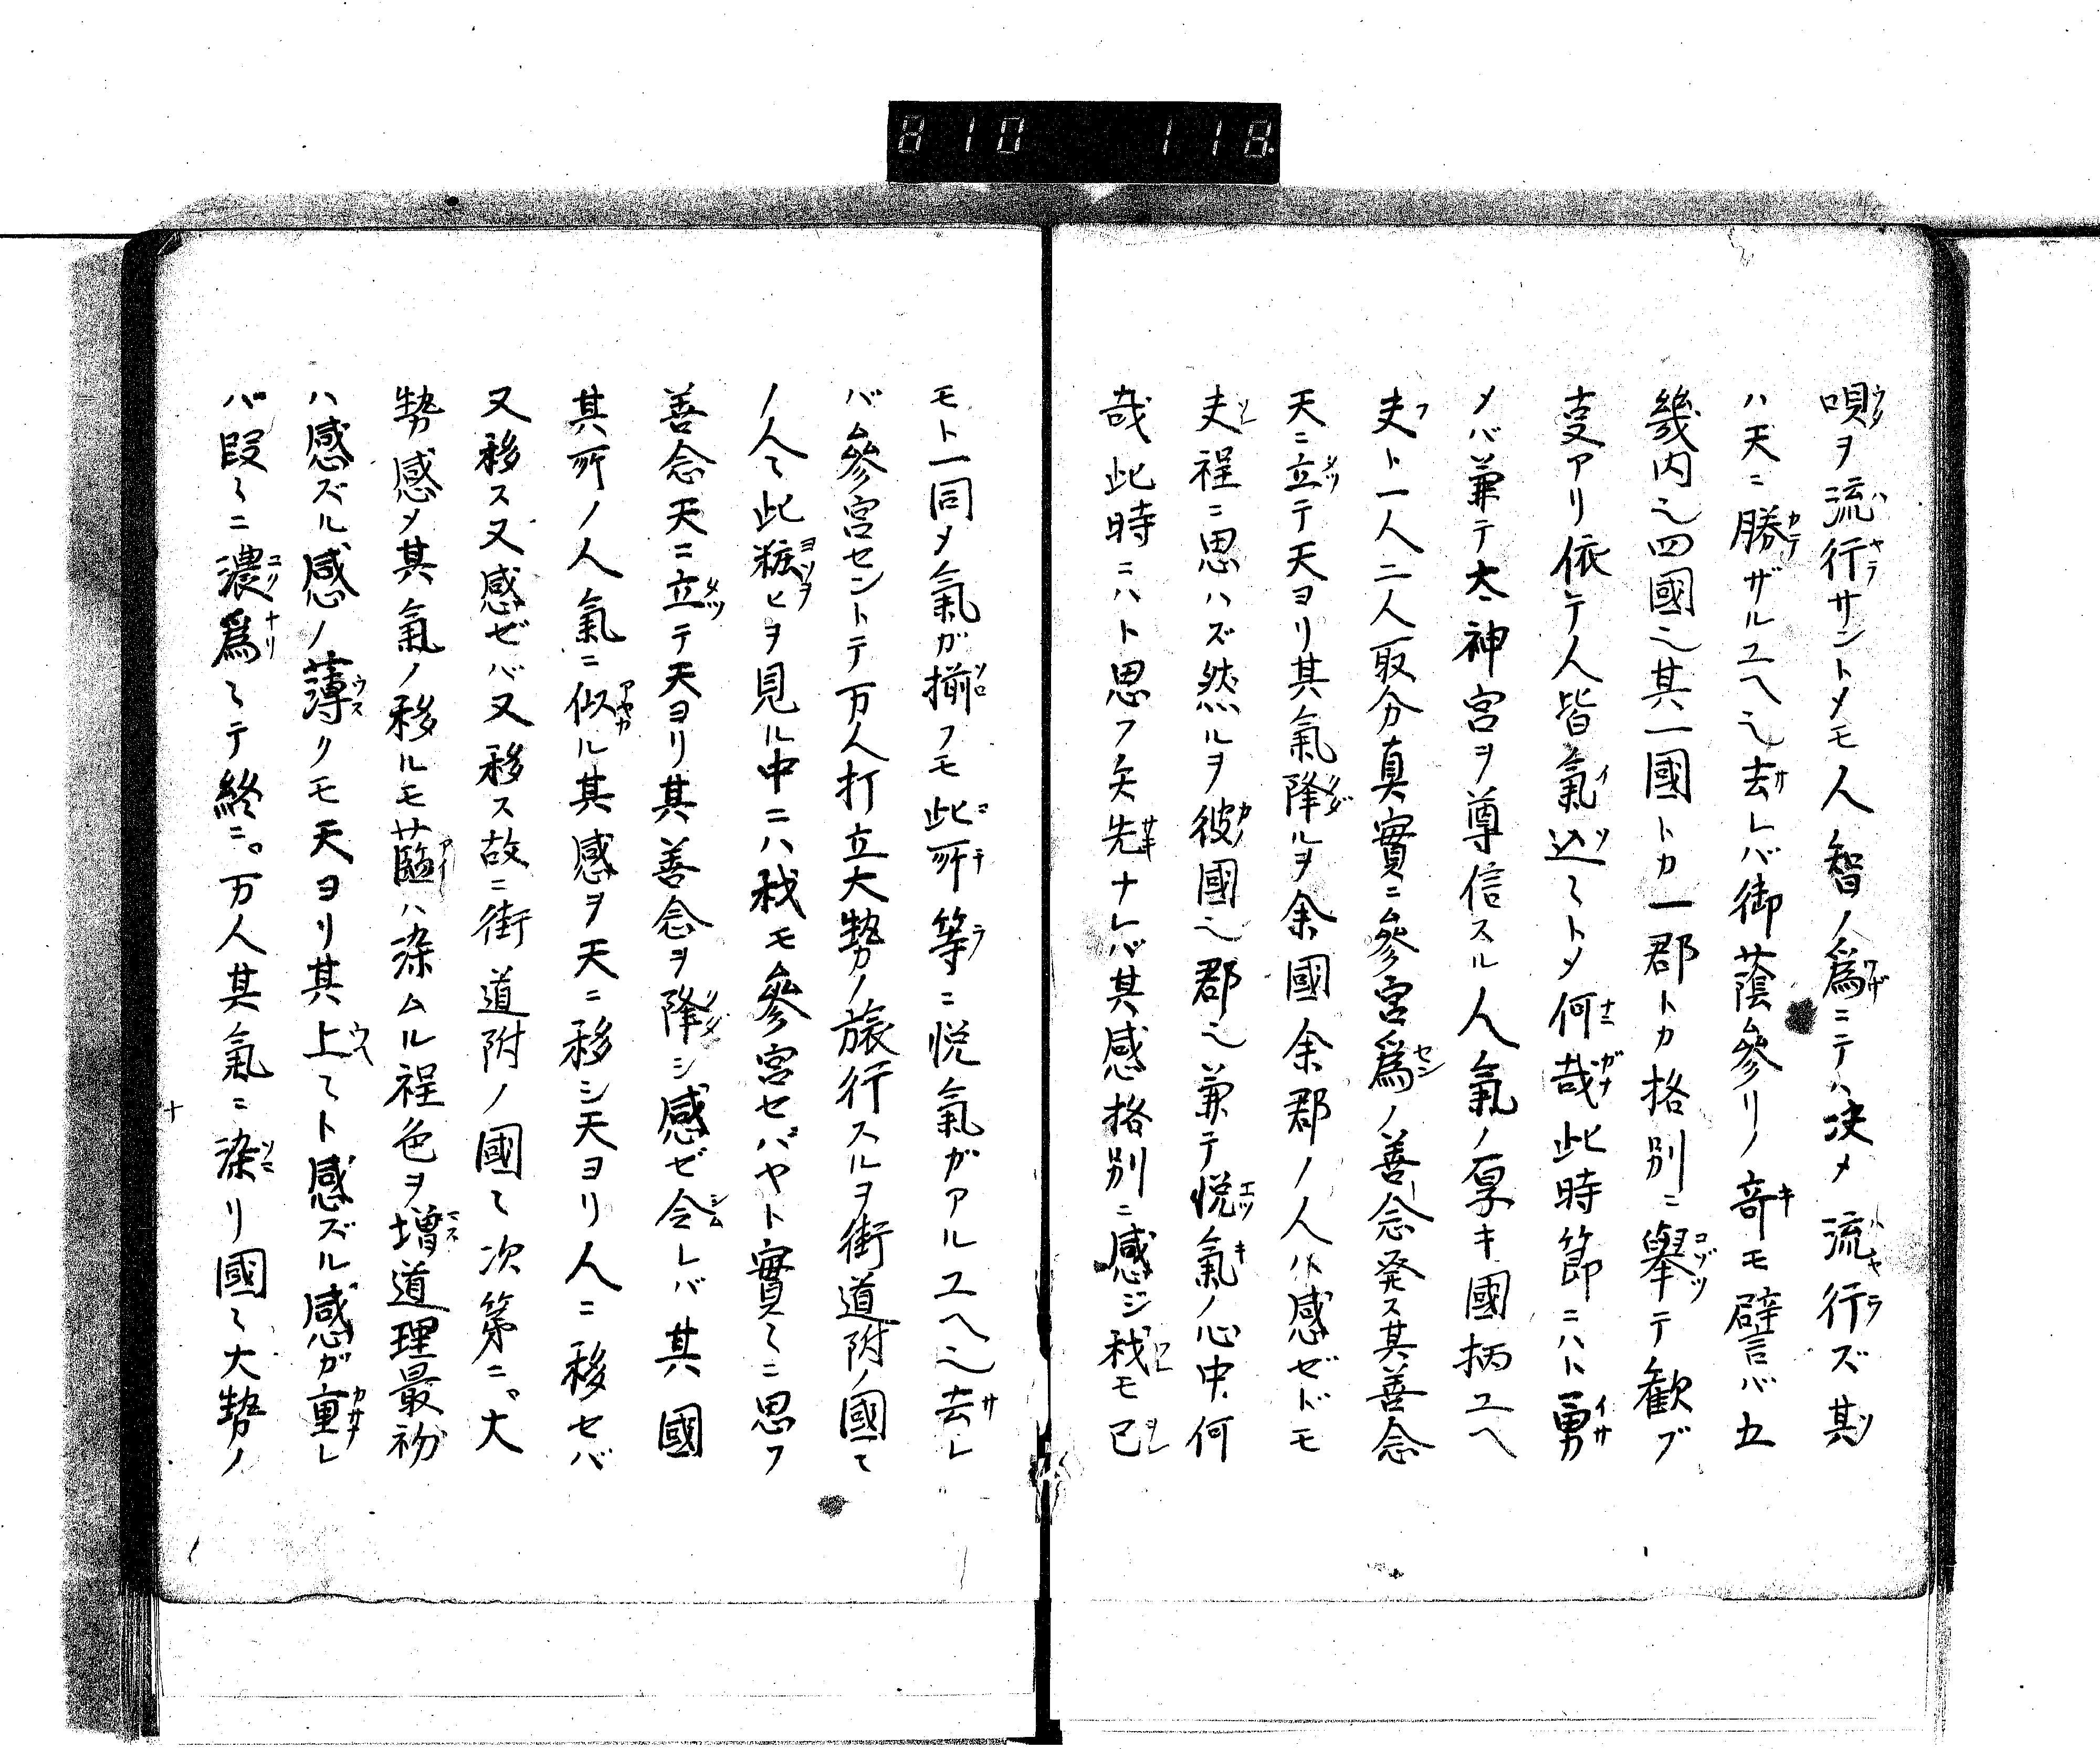 8 10 118.
唄ヲ流行サントメモ人智ノ爲ニテハ决メ流行ズ其
ハ天ニ勝ザルユヘ也去レバ御蔭參リノ竒モ譬バ五
幾内也四國也其一國トカ一郡トカ格別ニ擧テ歓ブ
叓アリ依テ人皆氣込〻トメ何哉此時節ニハト勇
メバ兼テ太神宮ヲ尊信スル人氣ノ厚キ國柄ユヘ
夫ト一人二人取分真實ニ參宮爲ノ善念発ス其善念
天ニ立テ天ヨリ其氣降ルヲ余國余郡ノ人ハ感ゼドモ
夫程ニ思ハズ然ルヲ彼國也郡也兼テ悦氣ノ心中何
哉此時ニハト思フ矢先ナレバ其感格別ニ感ジ我モ己
モト一同メ氣ガ揃フモ此所等ニ悦氣ガアルユヘ也去レ
バ參宮セントテ万人打立大勢ノ旅行スルヲ街道附ノ國〻
ノ人〻此粧ヒヲ見ル中ニハ我モ參宮セバヤト實〻ニ思フ
善念天ニ立テ天ヨリ其善念ヲ降シ感ゼ令レバ其國
其所ノ人氣ニ似ル其感ヲ天ニ移シ天ヨリ人ニ移セバ
又移ス又感ゼバ又移ス故ニ街道附ノ國〻次第ニ大
勢感メ其氣ノ移ルモ藍ハ染ムル程色ヲ増道理最初
ハ感ズル感ノ薄クモ天ヨリ其上〻ト感ズル感ガ重レ
バ段〻ニ濃爲〻テ終ニ万人其氣ニ染リ國〻大勢ノ
ナ